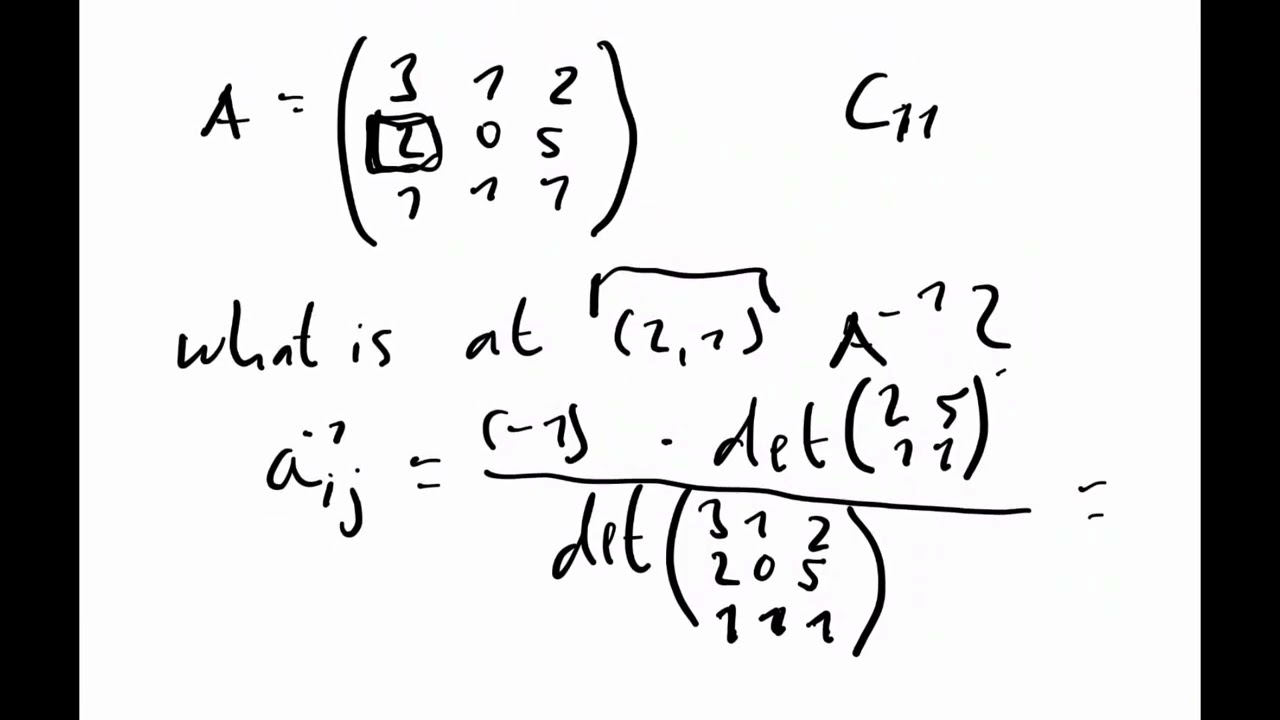 A = (3 1 2
2 0 5
1 1 1)
C11
what is at (2,1) A^-1 ?
a^-1_ij = (-1) · det(2 5
1 1)
det(3 1 2
2 0 5
1 1 1)
=